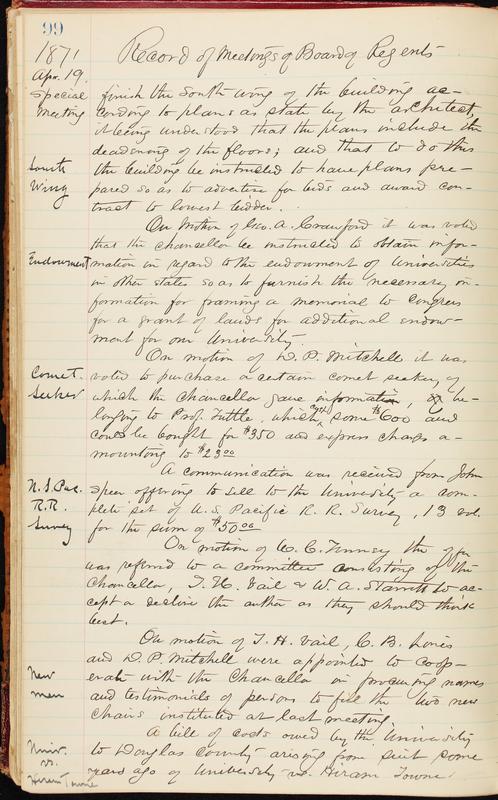 99
1871
Record of Meetings of Board of Regents
Apr. 19.
Special
Meeting
finish the South wing of the building ac-
cording to plans as state by the architect,
it being understood that the plans include the
deadening of the floors; and that to do this
South
Wing
the building be instructed to have plans pre-
pared so as to advertise for bids and award con-
tract to lowest bidder.
On Motion of Geo. A. Crawford it was voted
that the chancellor be instructed to obtain infor-
Endowment
mation in regard to the endowment of Universities
in other states so as to furnish the necessary in-
formation for framing a memorial to Congress
for a grant of lands for additional endow-
ment for our University.
On motion of D. P. Mitchell it was
Comet
Seeker
voted to purchase a certain comet seeker of
which the chancellor gave information be-
longing to Prof. Tuttle, which cost some $600 and
could be bought for $350 and express charges a-
mounting to $23.00
A communication was received from John
Speer offering to sell to the University a com-
R.R.
Survey
plete set of U.S. Pacific R. R. Survey, 13 vol.
for the sum of $50.00
On motion of W. C. Tenney the offer
was referred to a committee consisting of the
Chancellor, T. H. Vail & W. A. Starrett to ac-
cept or decline the as they should think
best.
On motion of T. H. Vail, C. B. Lines
and D. P. Mitchell were appointed to coop-
New
men
erate with the Chancellor in procuring names
and testimonials of persons to fill the two new
Chairs instituted at last meeting.
A bill of costs owed by the University
Univ.
vs.
Hiram Towne
to Douglas County arising from suit some
years ago of University vs. Hiram Towne